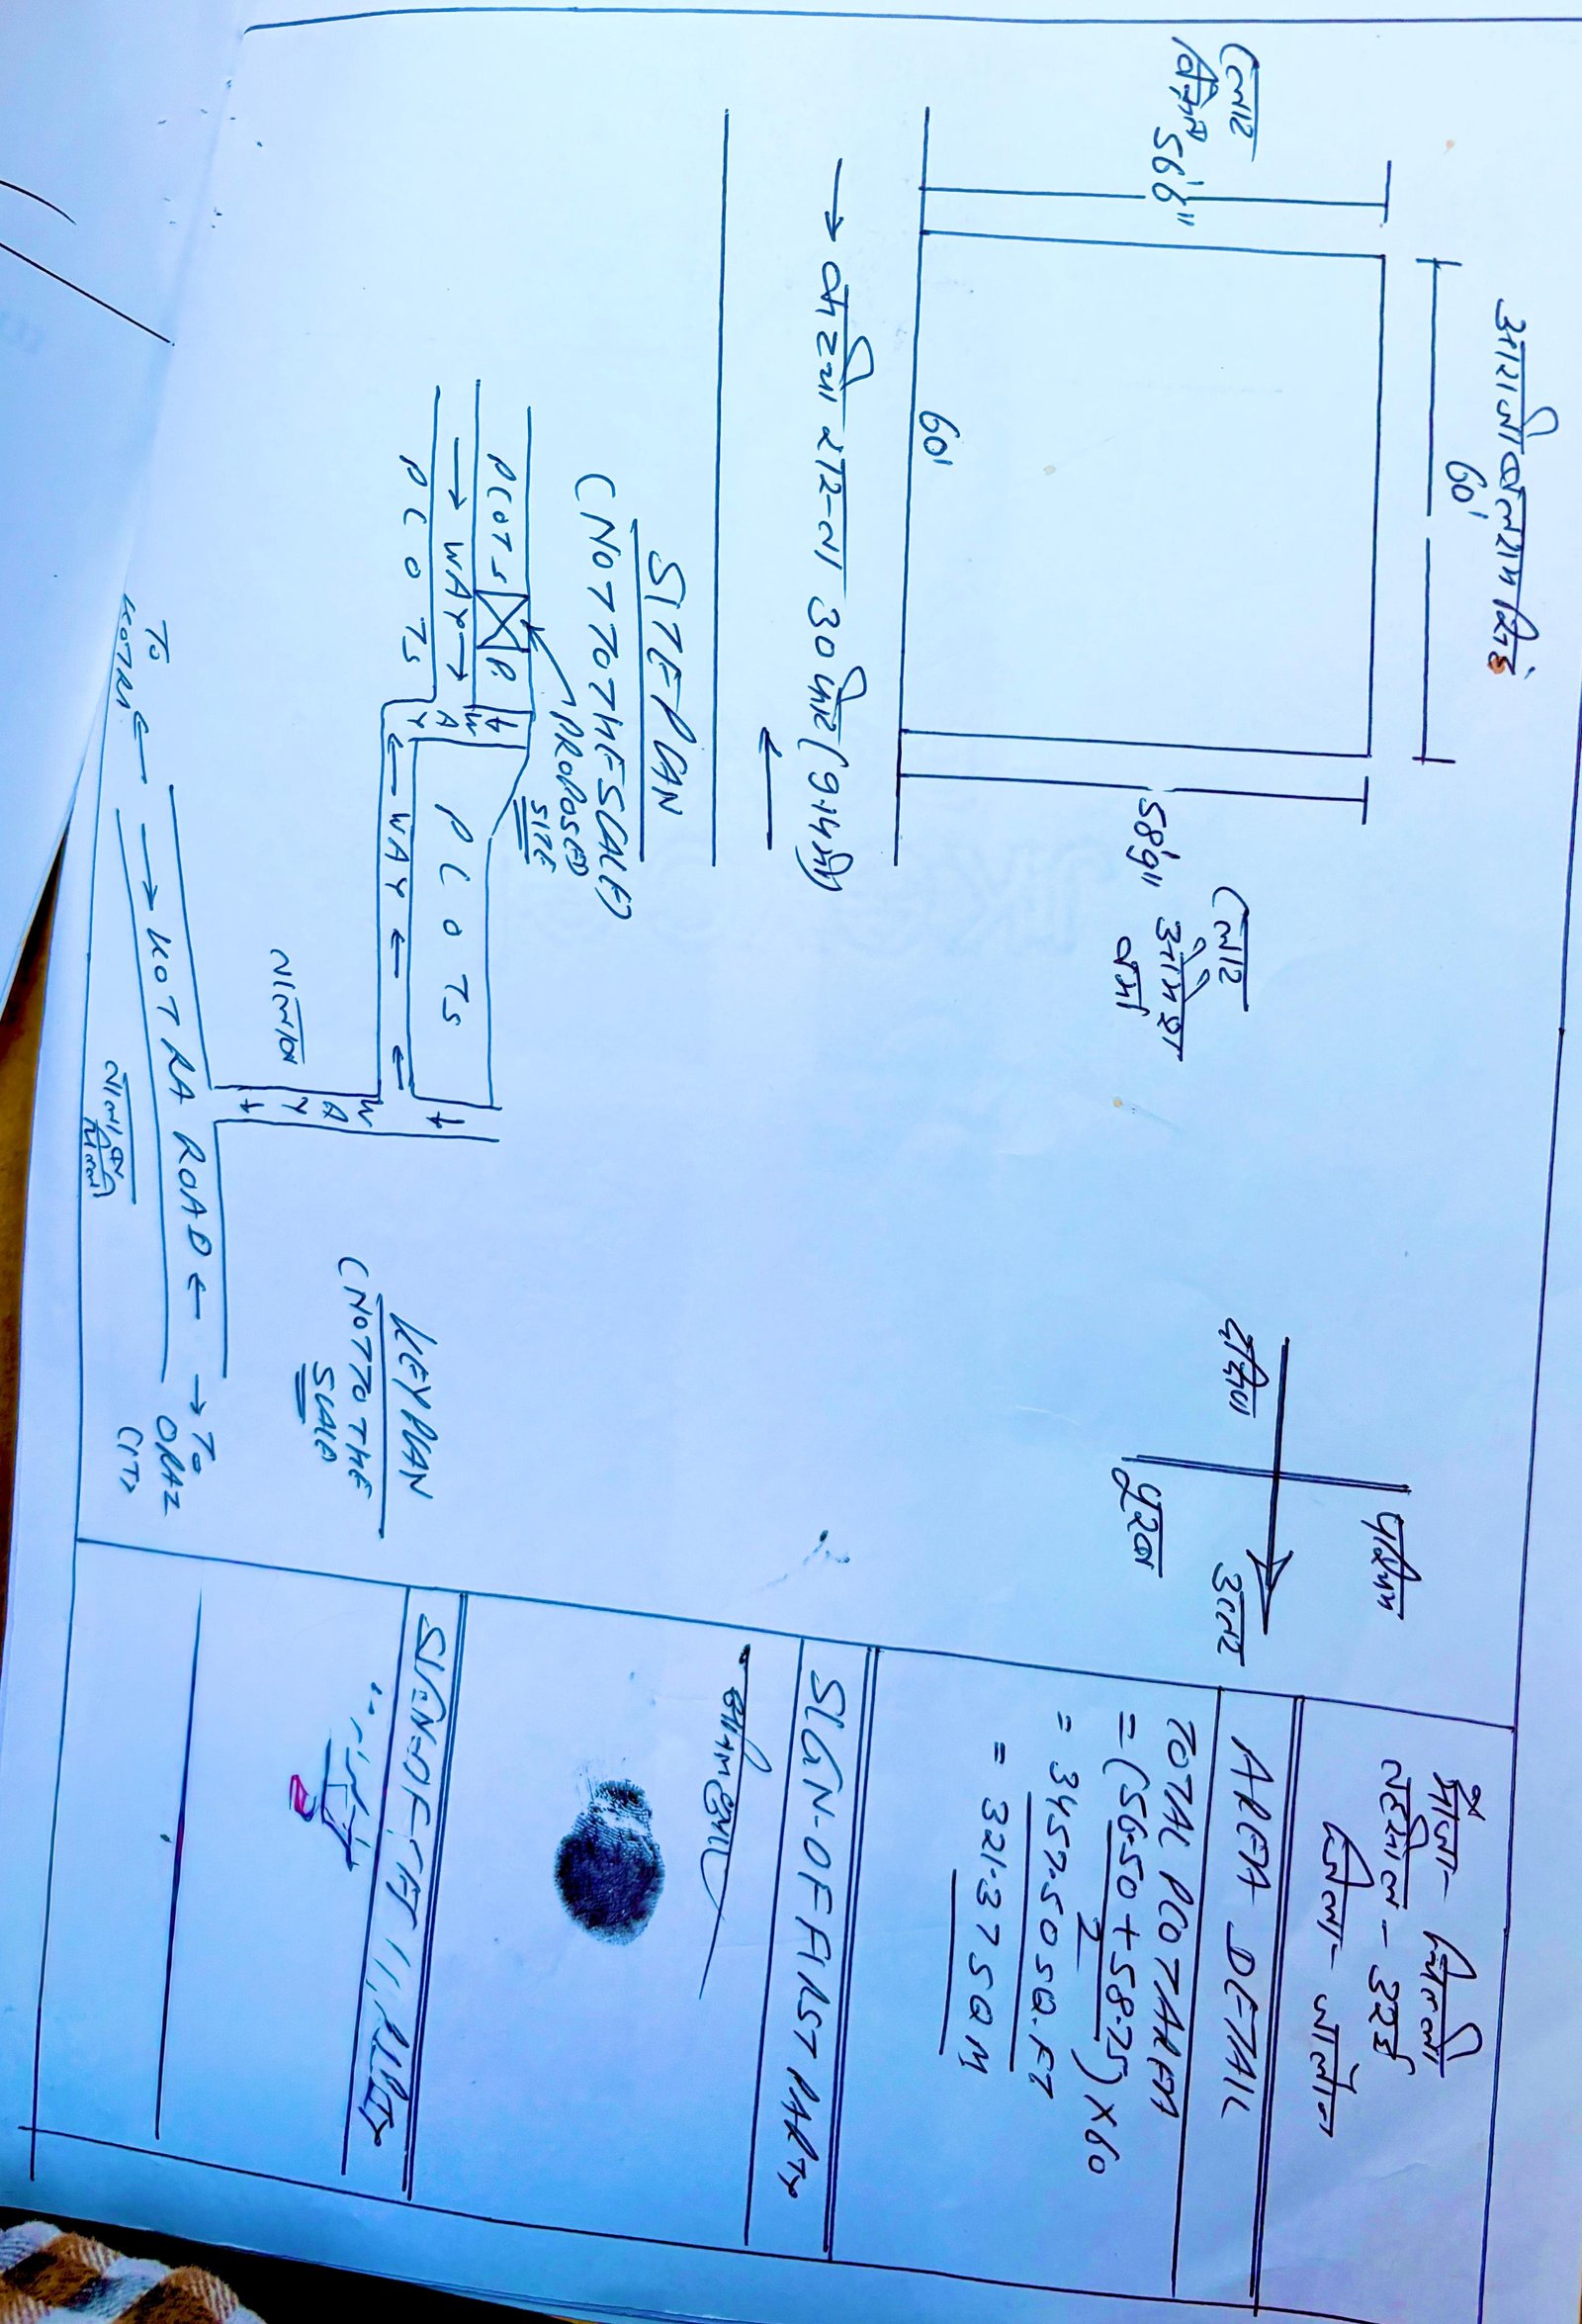 आराजी बलराम सिंह
60'
प्लाट
56'6"
58'9"
प्लाट
ओमप्रकाश
वर्मा
60'
→ कोटरा रास्ता 30 फिट (9.14 मी)
←
SITE PLAN
(NOT TO THE SCALE)
PROPOSED
SITE
PLOTS
P.
→ WAY →
PLOTS
WAY
PLOTS
← WAY ← ←
WAY
नाला
TO
KOTRA ←
→ KOTRA ROAD ←
→ TO
ORAI
KEY PLAN
(NOT TO THE
SCALE)
पश्चिम
दक्षिण
उत्तर
पूरब
तहसील - उरई
जिला - जालौन
AREA DETAIL
TOTAL PLOT AREA
= (56.50 + 58.75) × 60
2
= 3457.50 SQ.FT
= 321.37 SQ M
SIGN-OF FIRST PARTY
SIGN-OF